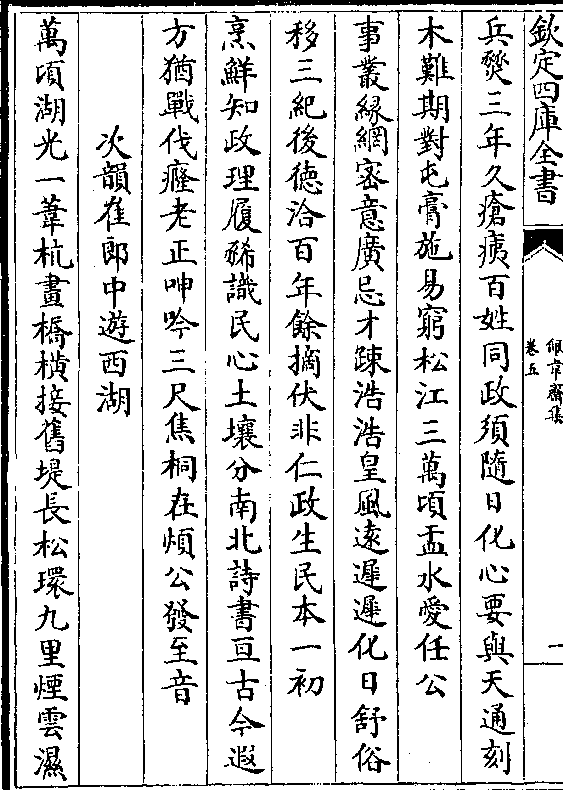 欽定四庫全書
卷五
兵燹三年久瘡痍百姓同政須隨日化心要與天通刻
木難期對屯膏施易窮松江三萬頃盂水愛任公
事叢緣網密意廣忌才疎浩浩皇風逺遲遲化日舒俗
移三紀後徳洽百年餘摘伏非仁政生民本一初
烹鮮知政理履豨識民心土壤分南北詩書亘古今遐
方猶戰伐癃老正呻吟三尺焦桐在煩公發至音
次韻崔郎中遊西湖
萬頃湖光一葦杭畫橋橫接舊堤長松環九里煙雲濕